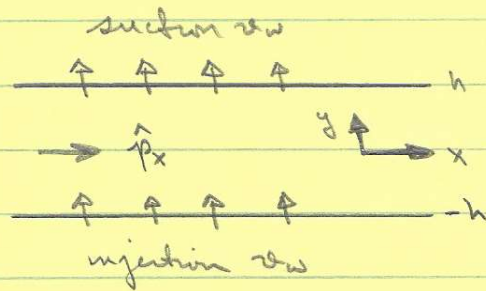 suction v_w
h
p̂_x
y
x
-h
injection v_w